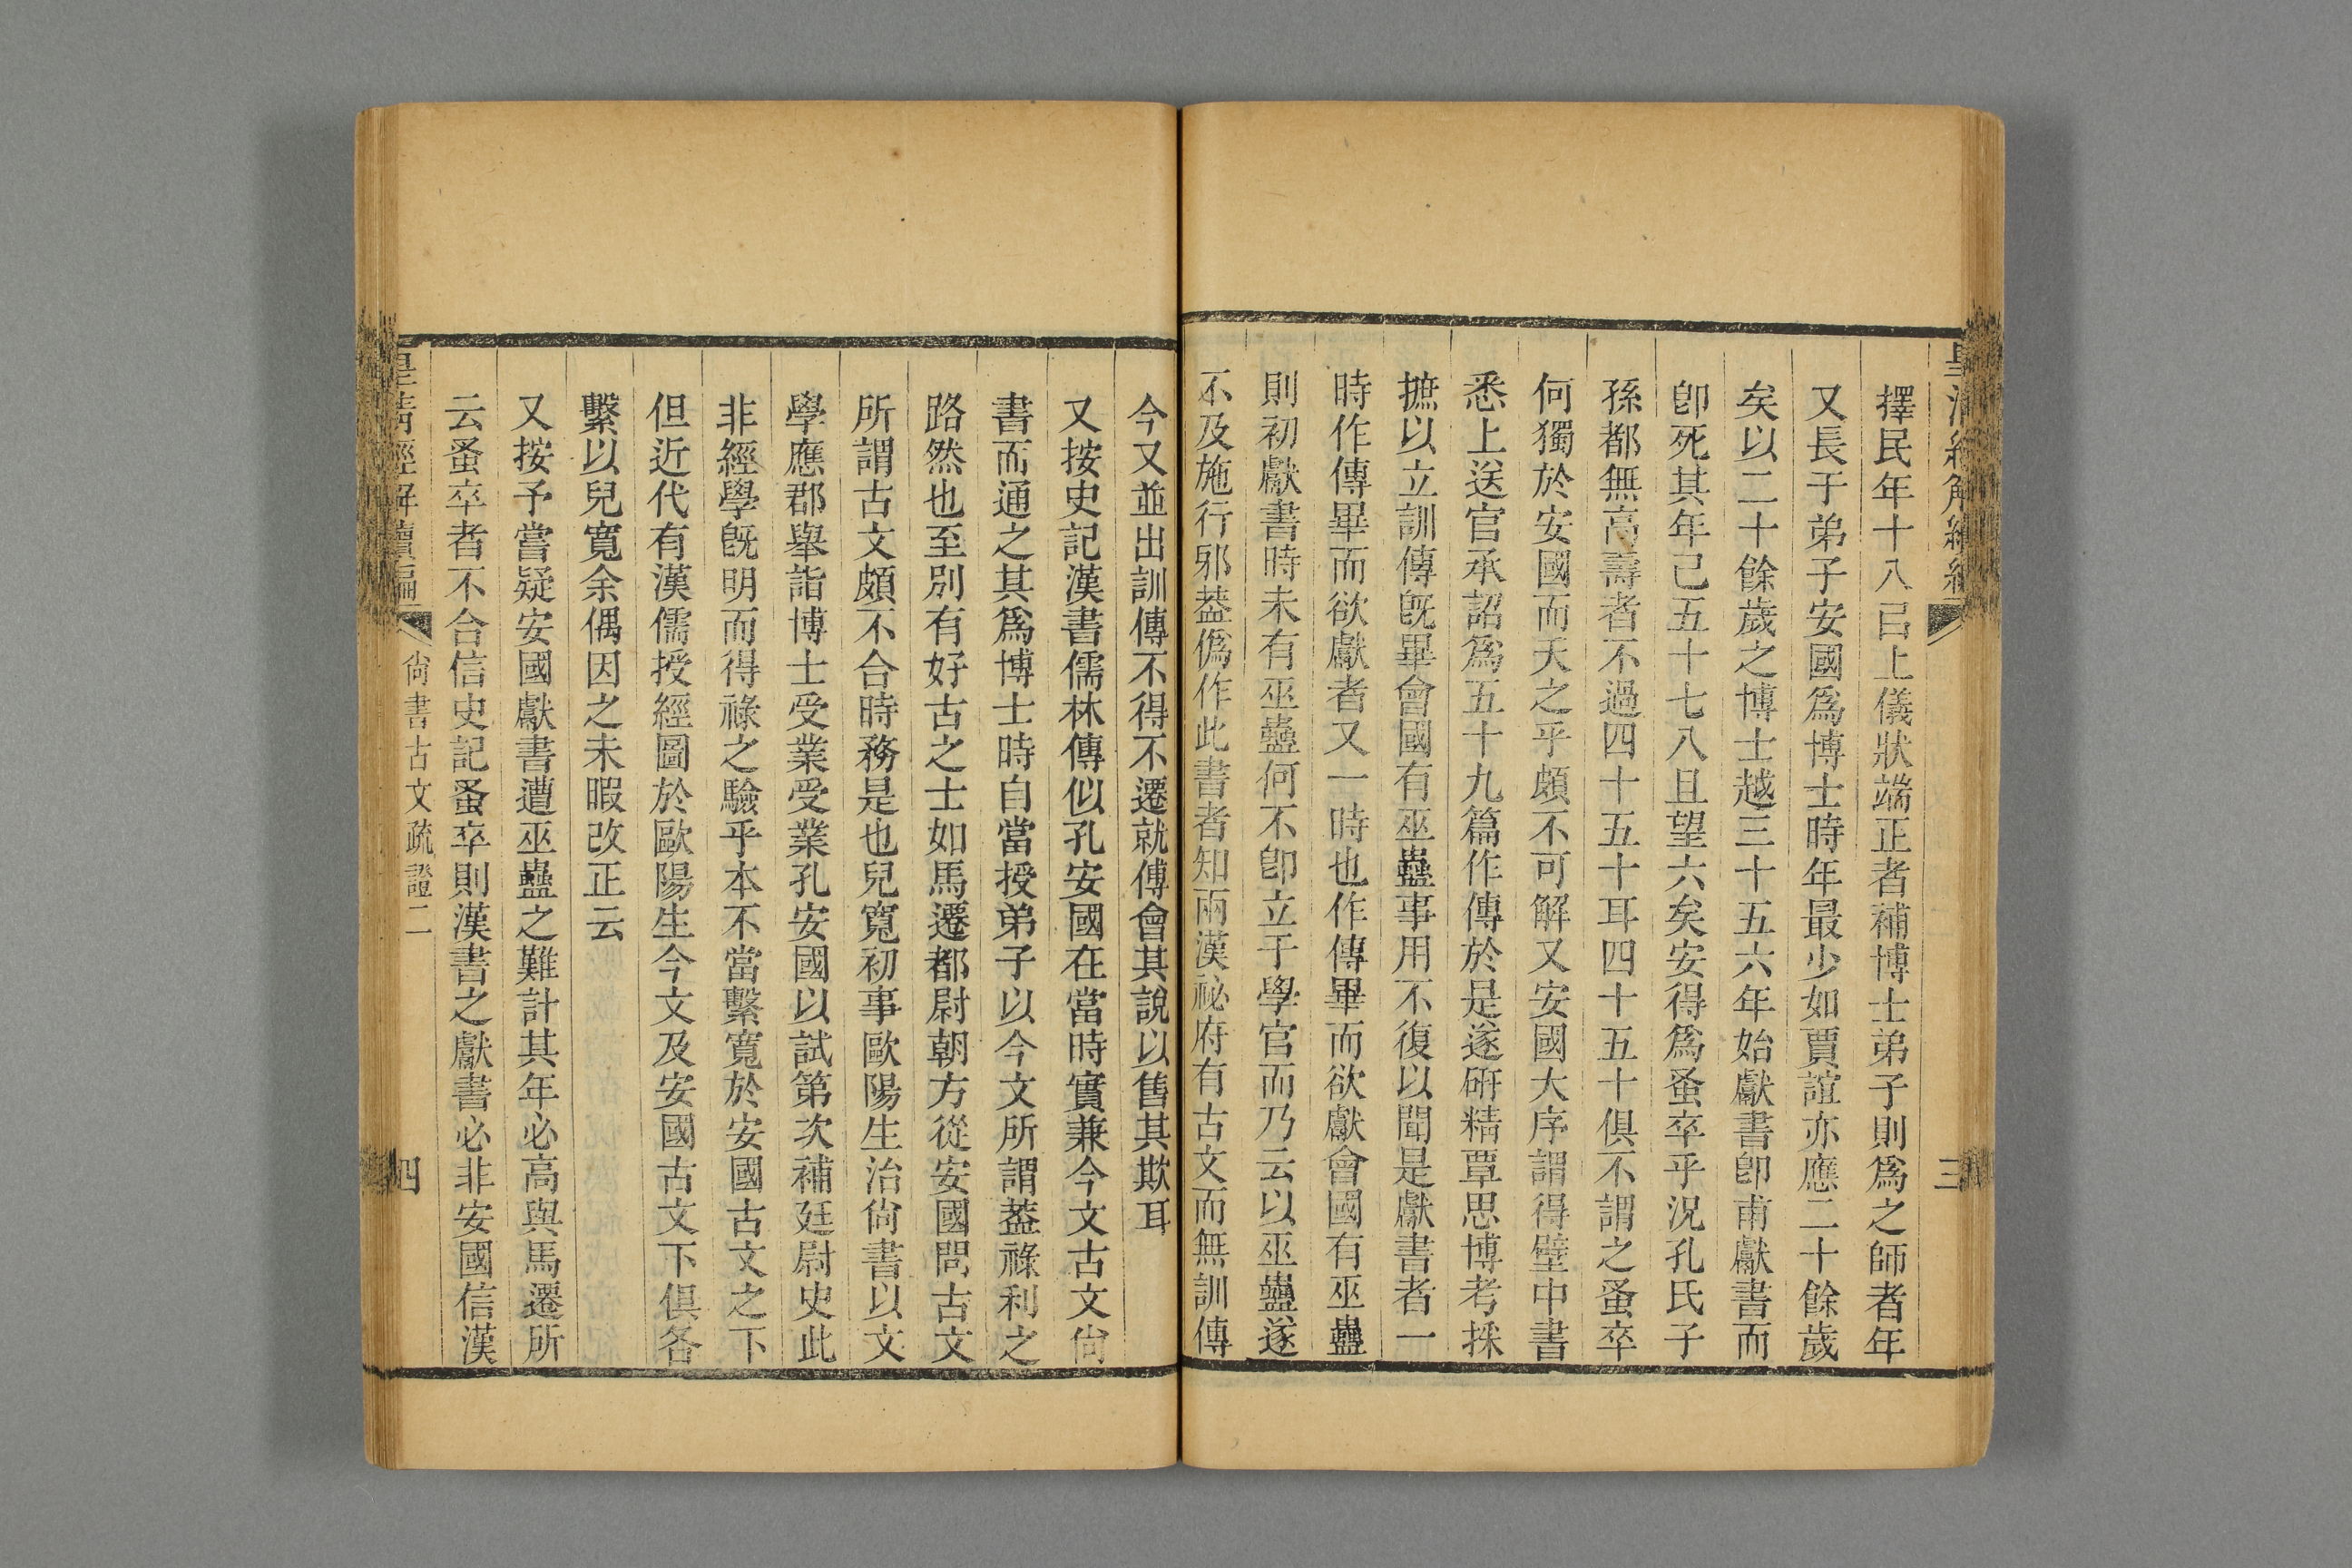 擇民年十八已上儀狀端正者補博士弟子則爲之師者年
又長于弟子安國爲博士時年最少如賈誼亦應二十餘歲
矣以二十餘歲之博士越三十五六年始獻書卽甫獻書而
卽死其年已五十七八且望六矣安得爲蚤卒乎況孔氏子
孫都無高壽者不過四十五十耳四十五十俱不謂之蚤卒
何獨於安國而夭之乎頗不可解又安國大序謂得壁中書
悉上送官承詔爲五十九篇作傳於是遂硏精覃思博考採
摭以立訓傳旣畢會國有巫蠱事用不復以聞是獻書者一
時作傳畢而欲獻者又一時也作傳畢而欲獻會國有巫蠱
則初獻書時未有巫蠱何不卽立于學官而乃云以巫蠱遂
不及施行邪葢僞作此書者知兩漢祕府有古文而無訓傳
今又並出訓傳不得不遷就傅會其說以售其欺耳
又按史記漢書儒林傳似孔安國在當時實兼今文古文尙
書而通之其爲博士時自當授弟子以今文所謂葢祿利之
路然也至別有好古之士如馬遷都尉朝方從安國問古文
所謂古文頗不合時務是也兒寬初事歐陽生治尙書以文
學應郡舉詣博士受業受業孔安國以試第次補廷尉史此
非經學旣明而得祿之驗乎本不當繫寬於安國古文之下
但近代有漢儒授經圖於歐陽生今文及安國古文下俱各
繫以兒寬余偶因之未暇改正云
又按予嘗疑安國獻書遭巫蠱之難計其年必高與馬遷所
云蚤卒者不合信史記蚤卒則漢書之獻書必非安國信漢
皇淸經解續編
尙書古文疏證二
四
三